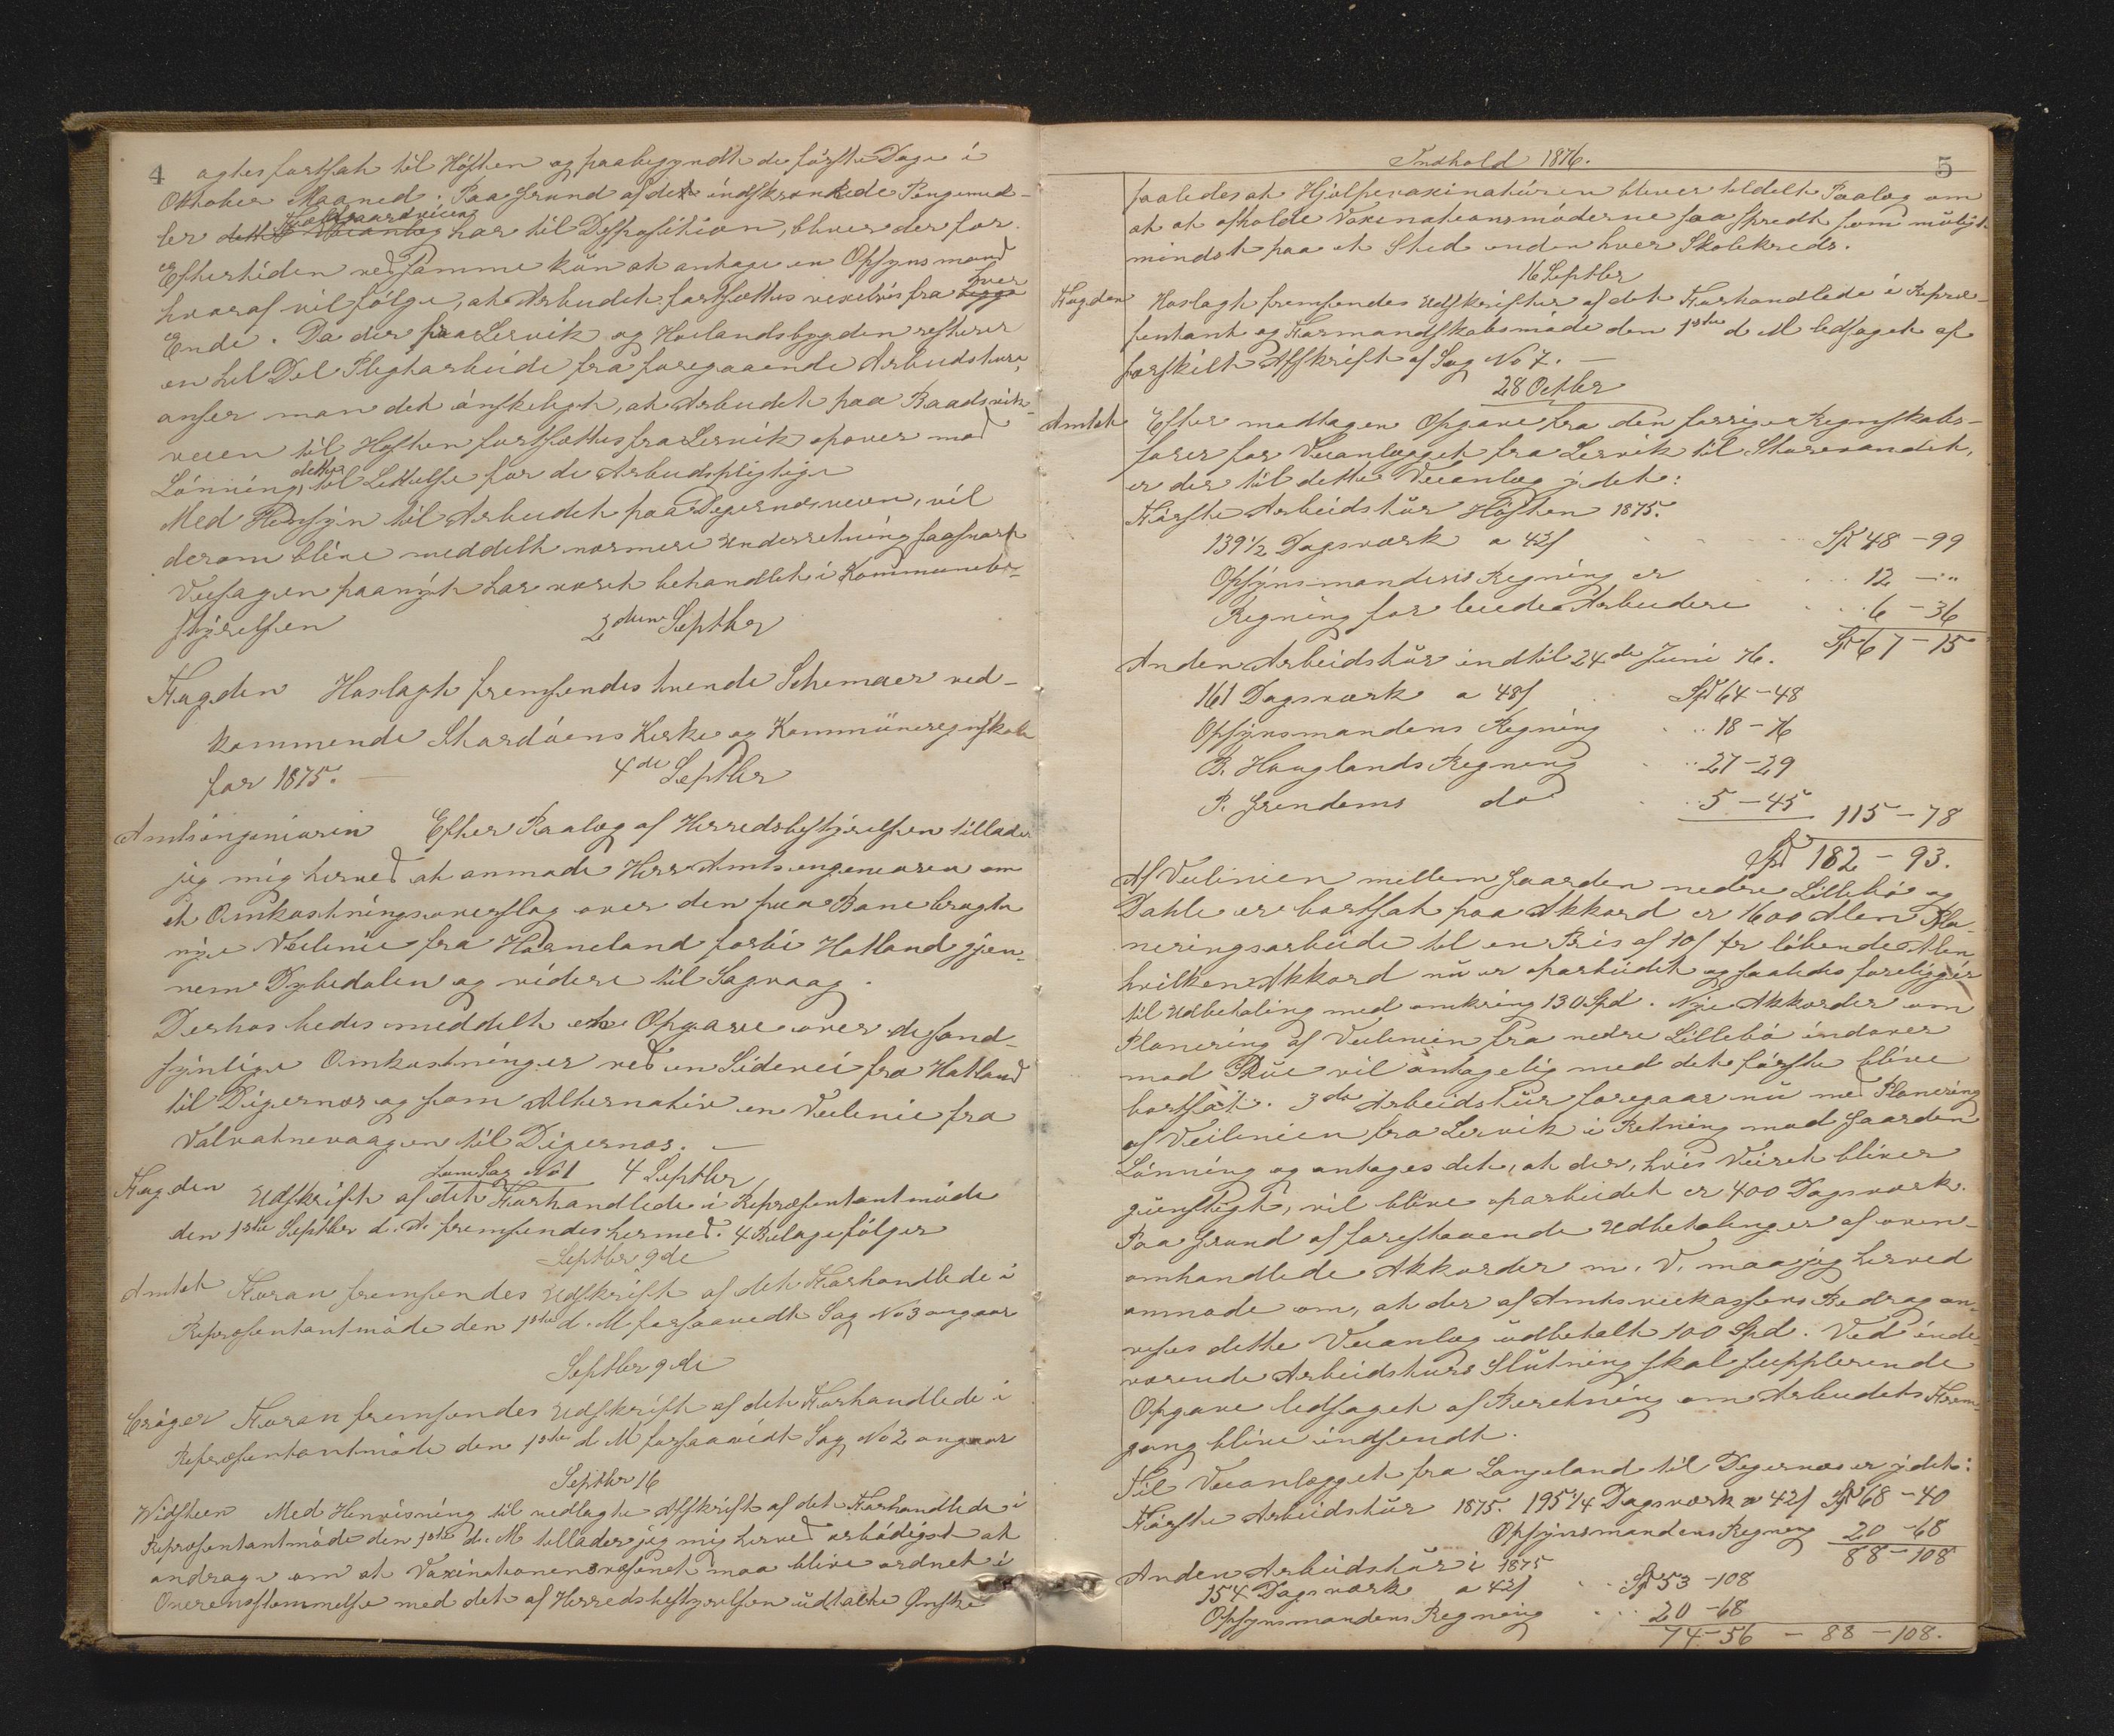 4
agtes fortsat til Høsten og paabegyndt de første Dage i
Oktober Maaned. Paa Grund af det indskrænkede Pengemid-
ler har til Disposition, bliver der for
Eftertiden ved samme kun at antage en Opsynsmand
hver
hvoraf vil følge, at Arbeidet fortsættes vexelvis fra begge
Ende. Da der paa Lervik og Hovlandsbygden resterer
en hel Del Pligtarbeide fra foregaaende Arbeidsture,
anser man det ønskeligt, at Arbeidet paa Baadsvik-
veien til Høsten fortsættes fra Lervik opover mod
dette
Lønning, til Lettelse for de Arbeidspligtige
Med Hensyn til Arbeidet paa Degernæsveien, vil
derom blive meddelt nærmere Underretning saasnart
Veisagen paanyt har været behandlet i Kommunebe-
styrelsen
2den Septbr
Fogden Hoslagt fremsendes tvende Schemaer ved-
kommende Stordøens Kirke og Kommuneregnskab
for 1875.
4de Septbr
Amtsingeniøren Efter Paalæg af Herredsbestyrelsen tillader
jeg mig herved at anmode Herr Amtsingeniøren om
et Omkostningsoverslag over den paa Bane bragte
nye Veilinie fra Horneland forbi Hatland gjen-
nem Dybedalen og videre til Sagvaag.
Derhos bedes meddelt en Opgave over de sand-
synlige Omkostninger ved en Sidevei fra Hatland
til Digernæs og som Alternativ en Veilinie fra
Valvatnevaagen til Digernæs.
som Sag No 1 4 Septbr
Fogden Udskrift af det Forhandlede i Repræsentantmøde
den 1ste Septbr d. A. fremsendes hermed. 4 Bilage følger
Septbr 9de
Amtet Foran fremsendes Udskrift af det Forhandlede i
Repræsentantmøde den 1ste d. M forsaavidt Sag No 3 angaar
Septbr 9de
Crøger Foran fremsendes Udskrift af det Forhandlede i
Repræsentantmøde den 1ste d. M forsaavidt Sag No 2 angaar
Septbr 16
Widsteen Med Henvisning til vedlagte Afskrift af det Forhandlede i
Repræsentantmøde den 1ste d. M tillader jeg mig herved ærbødigst at
andrage om at Vaxinationsvæsenet maa blive ordnet i
Overensstemmelse med det af Herredsbestyrelsen udtalte Ønske
Indhold 1876.
5
saaledes at Hjælpevaxinatøren bliver tildelt Paalæg om
at afholde Vaxinationsmøderne saa spredt som muligt
mindst paa et Sted inden hver Skolekreds.
16 Septbr
Fogden Hoslagt fremsendes Udskrifter af det Forhandlede i Repræ-
sentant og Formandskabsmøde den 1ste d M ledsaget af
særskilt Afskrift af Sag No 7.
28 Octbr
Amtet Efter modtagen Opgave fra den forrige Regnskabs-
fører for Veianlægget fra Lervik til Storevandet,
er der til dette Veianlæg ydet:
Første Arbeidstur Høsten 1875.
139 1/2 Dagsværk a 42 s Spd 48 - 99
Opsynsmandens Regning er 12 - "
Regning for leiede Arbeidere 6 - 36
Spd 67 - 15
Anden Arbeidstur indtil 24de Juni 76.
161 Dagsværk a 48 s Spd 64 - 48
Opsynsmandens Regning 18 - 76
B. Hauglands Regning 27 - 29
P. Grendems do 5 - 45 115 - 78
Spd 182 - 93.
Af Veilinien mellem Gaarden nedre Lillebø og
Dahle er bortsat paa Akkord er 1600 Alen Pla-
neringsarbeide til en Pris af 10 s pr løbende Alen
hvilken Akkord nu er oparbeidet og saaledes foreligger
til Udbetaling med omkring 130 Spd. Nye Akkorder om
Planering af Veilinien fra nedre Lillebø indover
mod Tvue vil antagelig med det første blive
bortsat. 3die Arbeidstur foregaar nu med Planering
af Veilinien fra Lervik i Retning mod Gaarden
Lønning og antages det, at der, hvis Veiret bliver
gunstigt, vil blive oparbeidet er 400 Dagsværk.
Paa Grund af forestaaende Udbetalinger af oven-
omhandlede Akkorder m. V. maa jeg herved
anmode om, at der af Amtsveikassens Bedrag an-
vises dette Veianlæg udbetalt 100 Spd. Ved inde-
værende Arbeidsturs Slutning skal supplerende
Opgave ledsaget af Beretning om Arbeidets Frem-
gang blive indsendt.
Til Veianlægget fra Langeland til Digernæs er ydet:
Første Arbeidstur 1875. 195 1/4 Dagsværk a 42 s Spd 68 - 40
Opsynsmandens Regning 20 - 68
88 - 108
Anden Arbeidstur i 1875
154 Dagsværk a 42 s Spd 53 - 108
Opsynsmandens Regning 20 - 68
74 - 56 - 88 - 108.